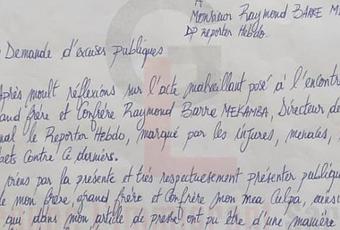 A
Monsieur Raymond BARRE M
DP reporter Hebdo.
Demande d'excuses publiques
Après moult réflexions sur l'acte malveillant posé à l'encontre
and frère et Confrère Raymond Barre MEKAMBA, Directeur de
nal le Reporter Hebdo, marqué par les injures, menaces,
ets contre ce dernier.
viens par la présente et très respectueusement présenter publique
e mon frère, grand frère et Confrère mon mea culpa, mens
qui dans mon article de presse, ont pu être d'une manière